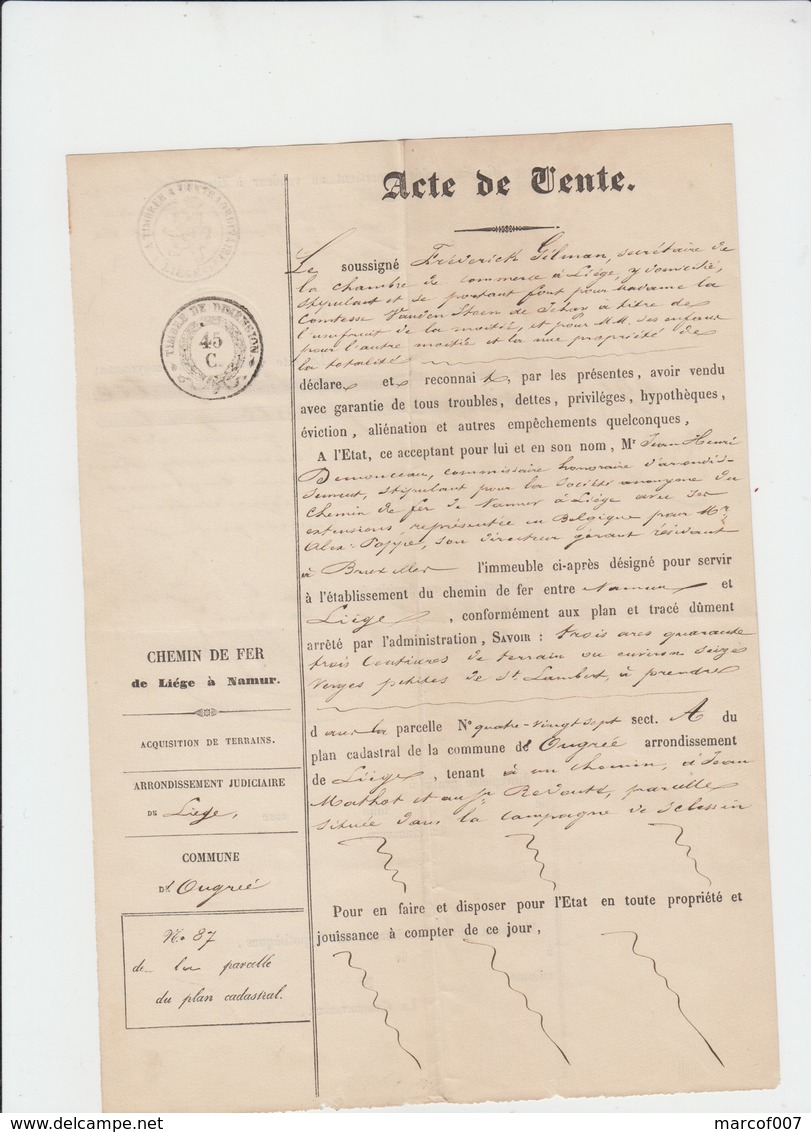 Acte de Vente.
TIMBRE DE DIMENSION
45
C.
Le soussigné Fréderick Gilman, secrétaire de
la chambre de commerce à Liége, y domicilié,
stipulant et se portant fort pour madame la
Comtesse Vanden Steen de Jehay à titre de
l'usufruit de la moitié, et pour MM. ses enfans
pour l'autre moitié et la nue propriété de
la totalité
déclare et reconnait, par les présentes, avoir vendu
avec garantie de tous troubles, dettes, priviléges, hypothèques,
éviction, aliénation et autres empêchements quelconques,
A l'Etat, ce acceptant pour lui et en son nom, Mr Jean Henri
Demonceau, commissaire honoraire d'arrondis-
sement, stipulant pour la Société anonyme du
Chemin de fer de Namur à Liége avec ses
extensions, représentée en Belgique par Mr
Alex: Poppe, son directeur gérant résidant
à Bruxelles l'immeuble ci-après désigné pour servir
à l'établissement du chemin de fer entre Namur et
Liége, conformément aux plan et tracé dûment
arrêté par l'administration, SAVOIR : trois ares quarante
trois Centiares de terrain ou environ seize
verges petites de St Lambert, à prendre
dans la parcelle No quatre-vingt sept sect. A du
plan cadastral de la commune d'Ougrée arrondissement
de Liége, tenant à un chemin, à Jean
Mathot et au sr, parcelle
située dans la campagne de Sclessin
Pour en faire et disposer pour l'Etat en toute propriété et
jouissance à compter de ce jour,
CHEMIN DE FER
de Liége à Namur.
ACQUISITION DE TERRAINS.
ARRONDISSEMENT JUDICIAIRE
DE Liége,
COMMUNE
D'Ougrée
No. 87
de la parcelle
du plan cadastral.
delcampe.net
marcof007